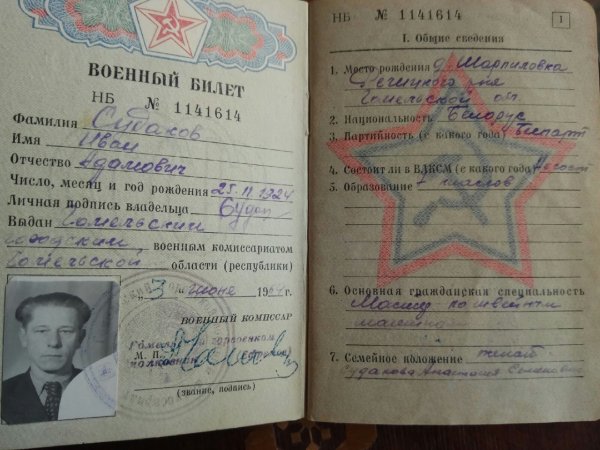 ВОЕННЫЙ БИЛЕТ
НБ № 1141614
Фамилия Судаков
Имя Иван
Отчество Адамович
Число, месяц и год рождения 25.11.1924
Личная подпись владельца Судак
Выдан Гомельским
городским военным комиссариатом
Гомельской области (республики)
"3" июня 19 г.
ВОЕННЫЙ КОМИССАР
М. П.
полковник
(звание, подпись)
НБ № 1141614
1
I. Общие сведения
1. Место рождения д. Шарпиловка
Речицкого р-на
Гомельской обл.
2. Национальность Белорус
3. Партийность (с какого года) б/парт
4. Состоит ли в ВЛКСМ (с какого года)
5. Образование классов
6. Основная гражданская специальность
Мастер по швейным
машинам
7. Семейное положение женат
Судакова Анастасия